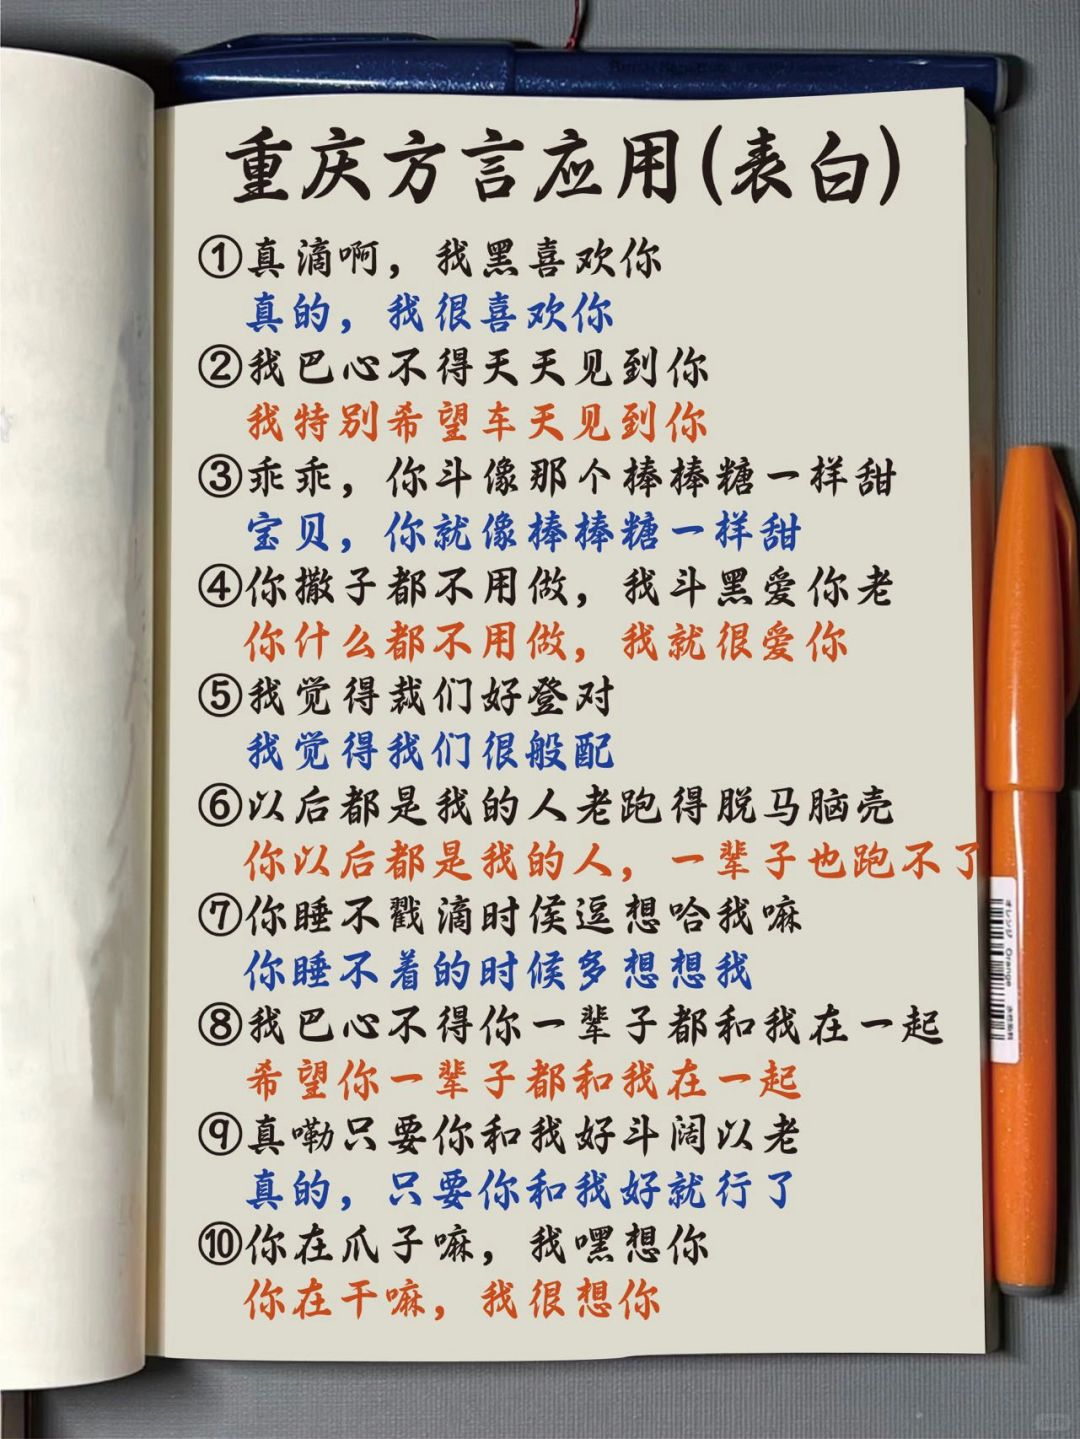 重庆方言应用(表白)
①真滴啊，我黑喜欢你
真的，我很喜欢你
②我巴心不得天天见到你
我特别希望车天见到你
③乖乖，你斗像那个棒棒糖一样甜
宝贝，你就像棒棒糖一样甜
④你撒子都不用做，我斗黑爱你老
你什么都不用做，我就很爱你
⑤我觉得裁们好登对
我觉得我们很般配
⑥以后都是我的人老跑得脱马脑壳
你以后都是我的人，一辈子也跑不了
⑦你睡不戳滴时侯逗想哈我嘛
你睡不着的时候多想想我
⑧我巴心不得你一辈子都和我在一起
希望你一辈子都和我在一起
⑨真嘞只要你和我好斗阔以老
真的，只要你和我好就行了
⑩你在爪子嘛，我嘿想你
你在干嘛，我很想你
オレンジ Orange